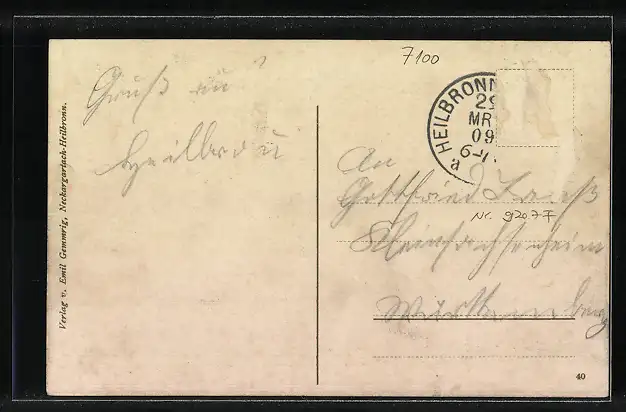 7100
Gruß aus
Heilbronn
Verlag v. Emil Gemmrig, Neckargartach-Heilbronn.
HEILBRONN
29
MR
09
6-7
a
An
Gottfried
Nr. 9207 F
Kleinsachsenheim
Württemberg
40